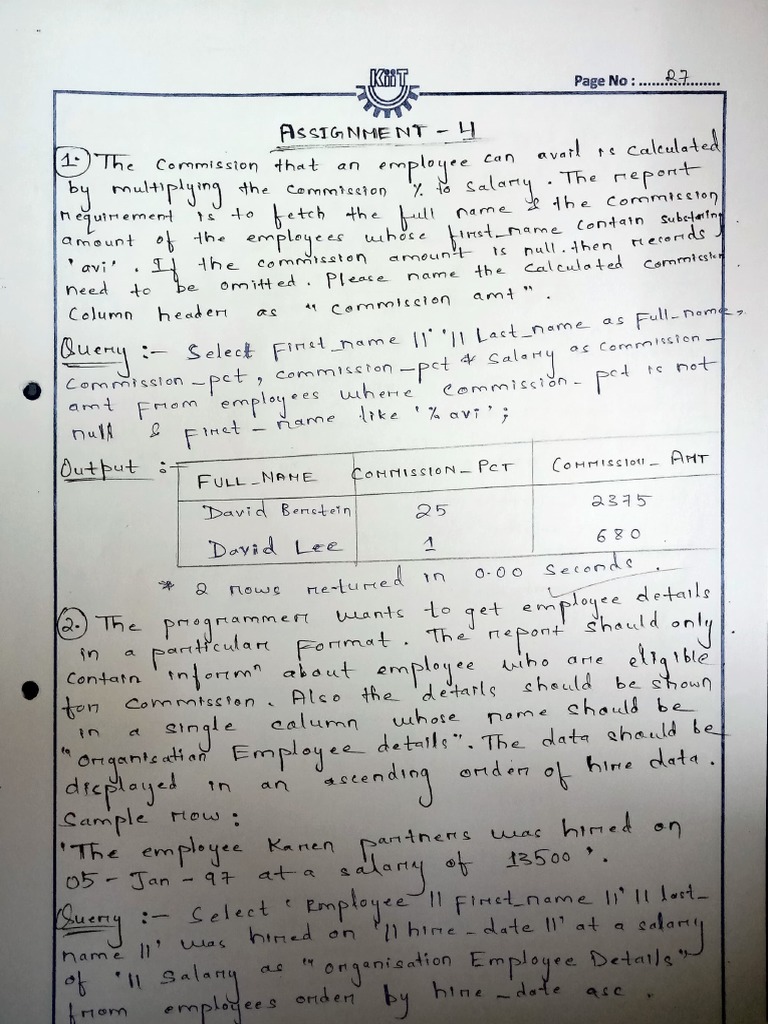 KiiT
Page No : 27
ASSIGNMENT - 4
1. The Commission that an employee can avail is calculated
by multiplying the commission % to salary. The report
requirement is to fetch the full name & the commission
amount of the employees whose first_name contain substring
'avi'. If the commission amount is null. then records
need to be omitted. Please name the calculated commission
Column header as "Commission amt".
Query :- Select First_name ||' '|| Last_name as Full-name,
Commission-pct, commission-pct * Salary as commission-
amt From employees where commission-pct is not
null & First-name like '%avi';
Output :-
FULL_NAME COMMISSION_PCT COMMISSION_AMT
David Bernstein 25 2375
David Lee 1 680
* 2 rows returned in 0.00 seconds.
2. The programmer wants to get employee details
in a particular format. The report should only
contain informn about employee who are eligible
for commission. Also the details should be shown
in a single column whose name should be
"Organisation Employee details". The data should be
displayed in an ascending order of hire data.
Sample row :
'The employee Karen partners was hired on
05-Jan-97 at a salary of 13500'.
Query :- Select 'Employee || First_name ||' || last-
name ||' was hired on '|| hire-date ||' at a salary
of '|| Salary as "Organisation Employee Details"
from employees order by hire-date asc.